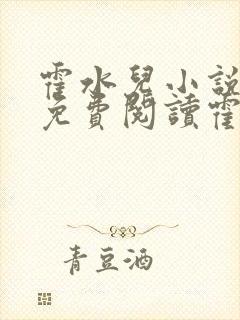 霍水兒小說
免費閱讀霍
青豆酒